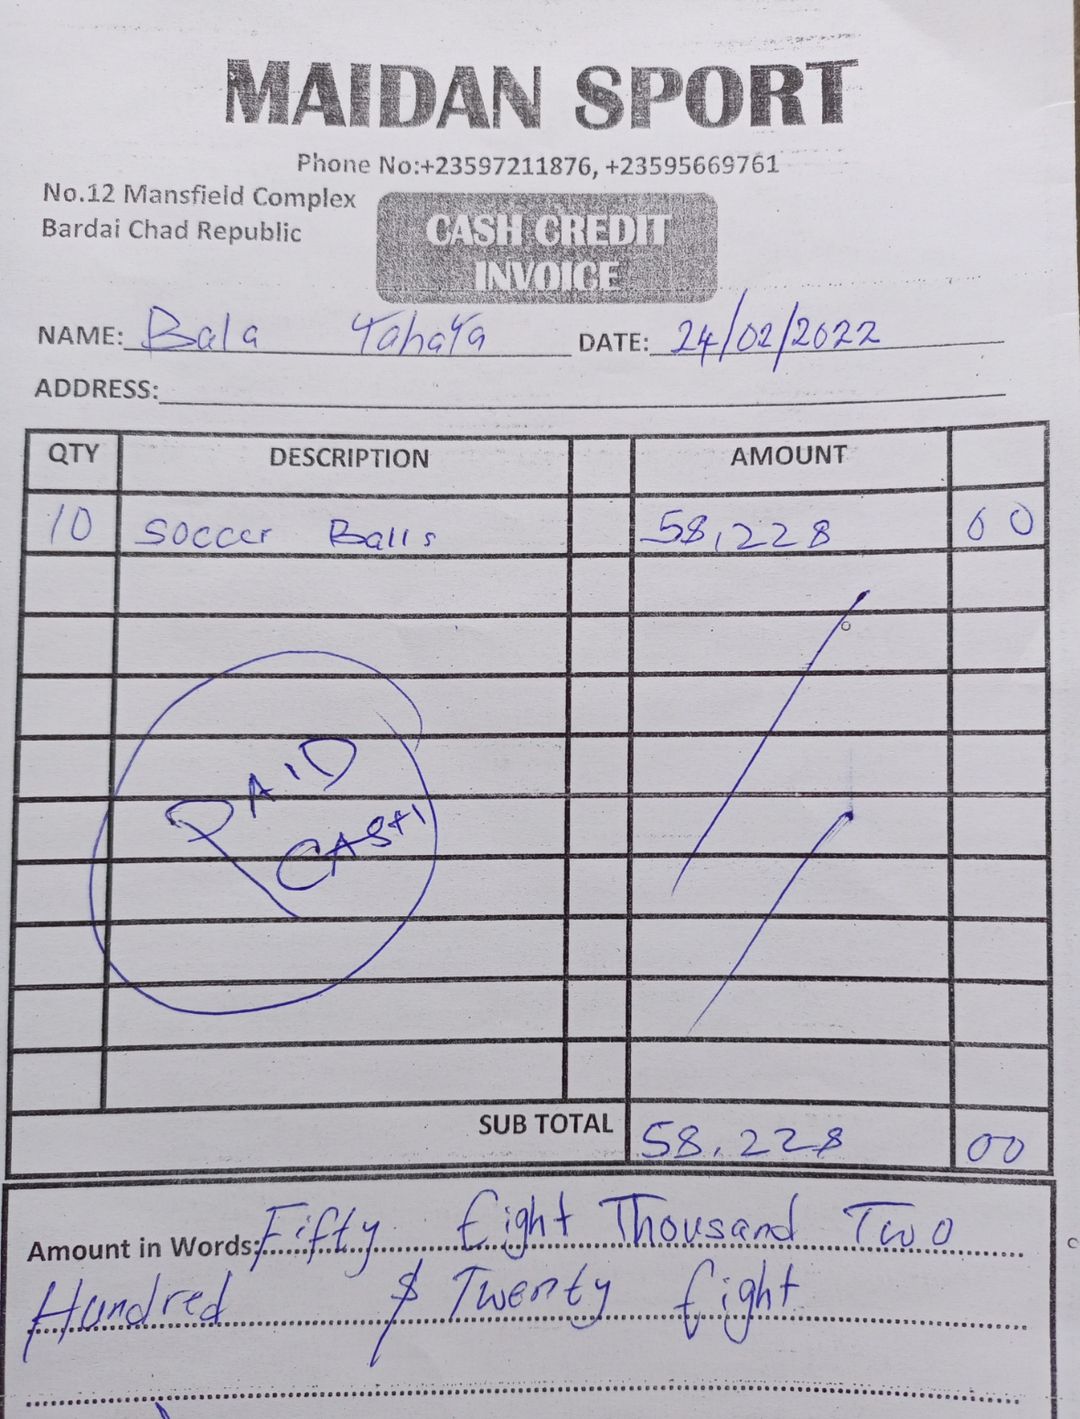 MAIDAN SPORT
Phone No:+23597211876, +23595669761
No.12 Mansfield Complex
Bardai Chad Republic
CASH CREDIT
INVOICE
NAME: Bala Yahaya DATE: 24/02/2022
ADDRESS:
QTY DESCRIPTION AMOUNT
10 Soccer Balls 58,228 00
PAID
CASH
SUB TOTAL 58,228 00
Amount in Words: Fifty Eight Thousand Two
Hundred $ Twenty Eight